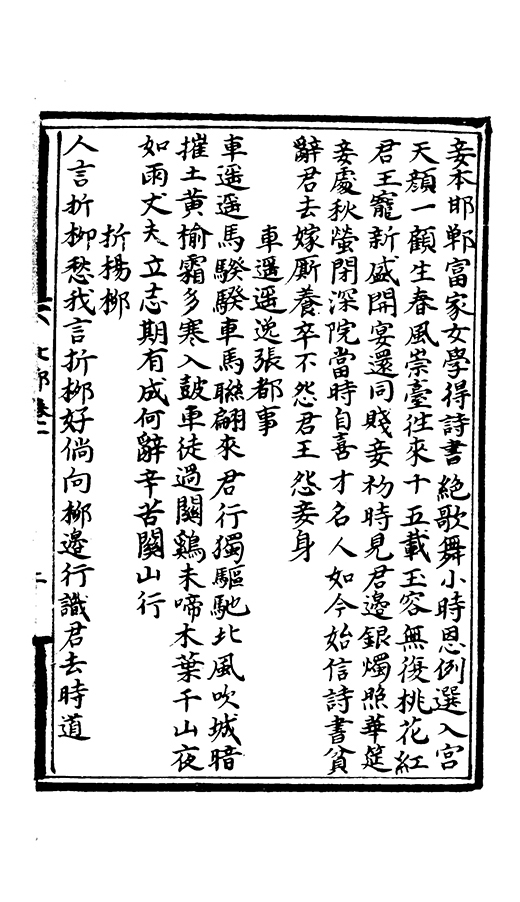 妾本邯鄲富家女學得詩書絶歌舞小時恩例選入宮
天顔一顧生春風崇臺往來十五載玉容無復桃花紅
君王寵新盛開宴還同賤妾初時見君邊銀燭照華筵
妾處秋螢閉深院當時自喜才名人如今始信詩書貧
辭君去嫁厮養卒不怨君王怨妾身
車遥遥送張都事
車遥遥馬騤騤車馬聯翩來君行獨驅馳北風吹城暗
摧土黄榆霜多寒入鼓車徒過關鷄未啼木葉千山夜
如雨丈夫立志期有成何辭辛苦關山行
折楊柳
人言折柳愁我言折柳好倘向柳邊行識君去時道